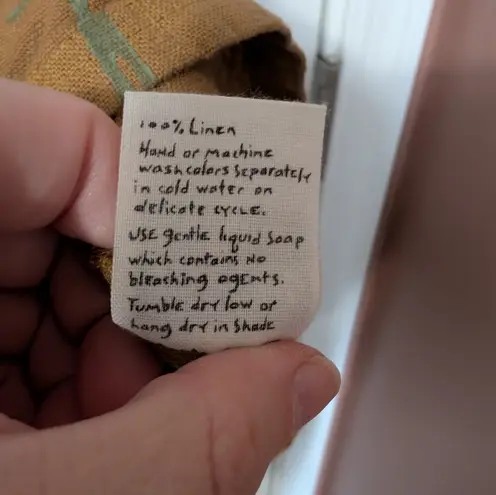 100% Linen
Hand or machine
wash colors separately
in cold water on
delicate cycle.
USE gentle liquid soap
which contains NO
bleaching agents.
Tumble dry low or
hang dry in shade